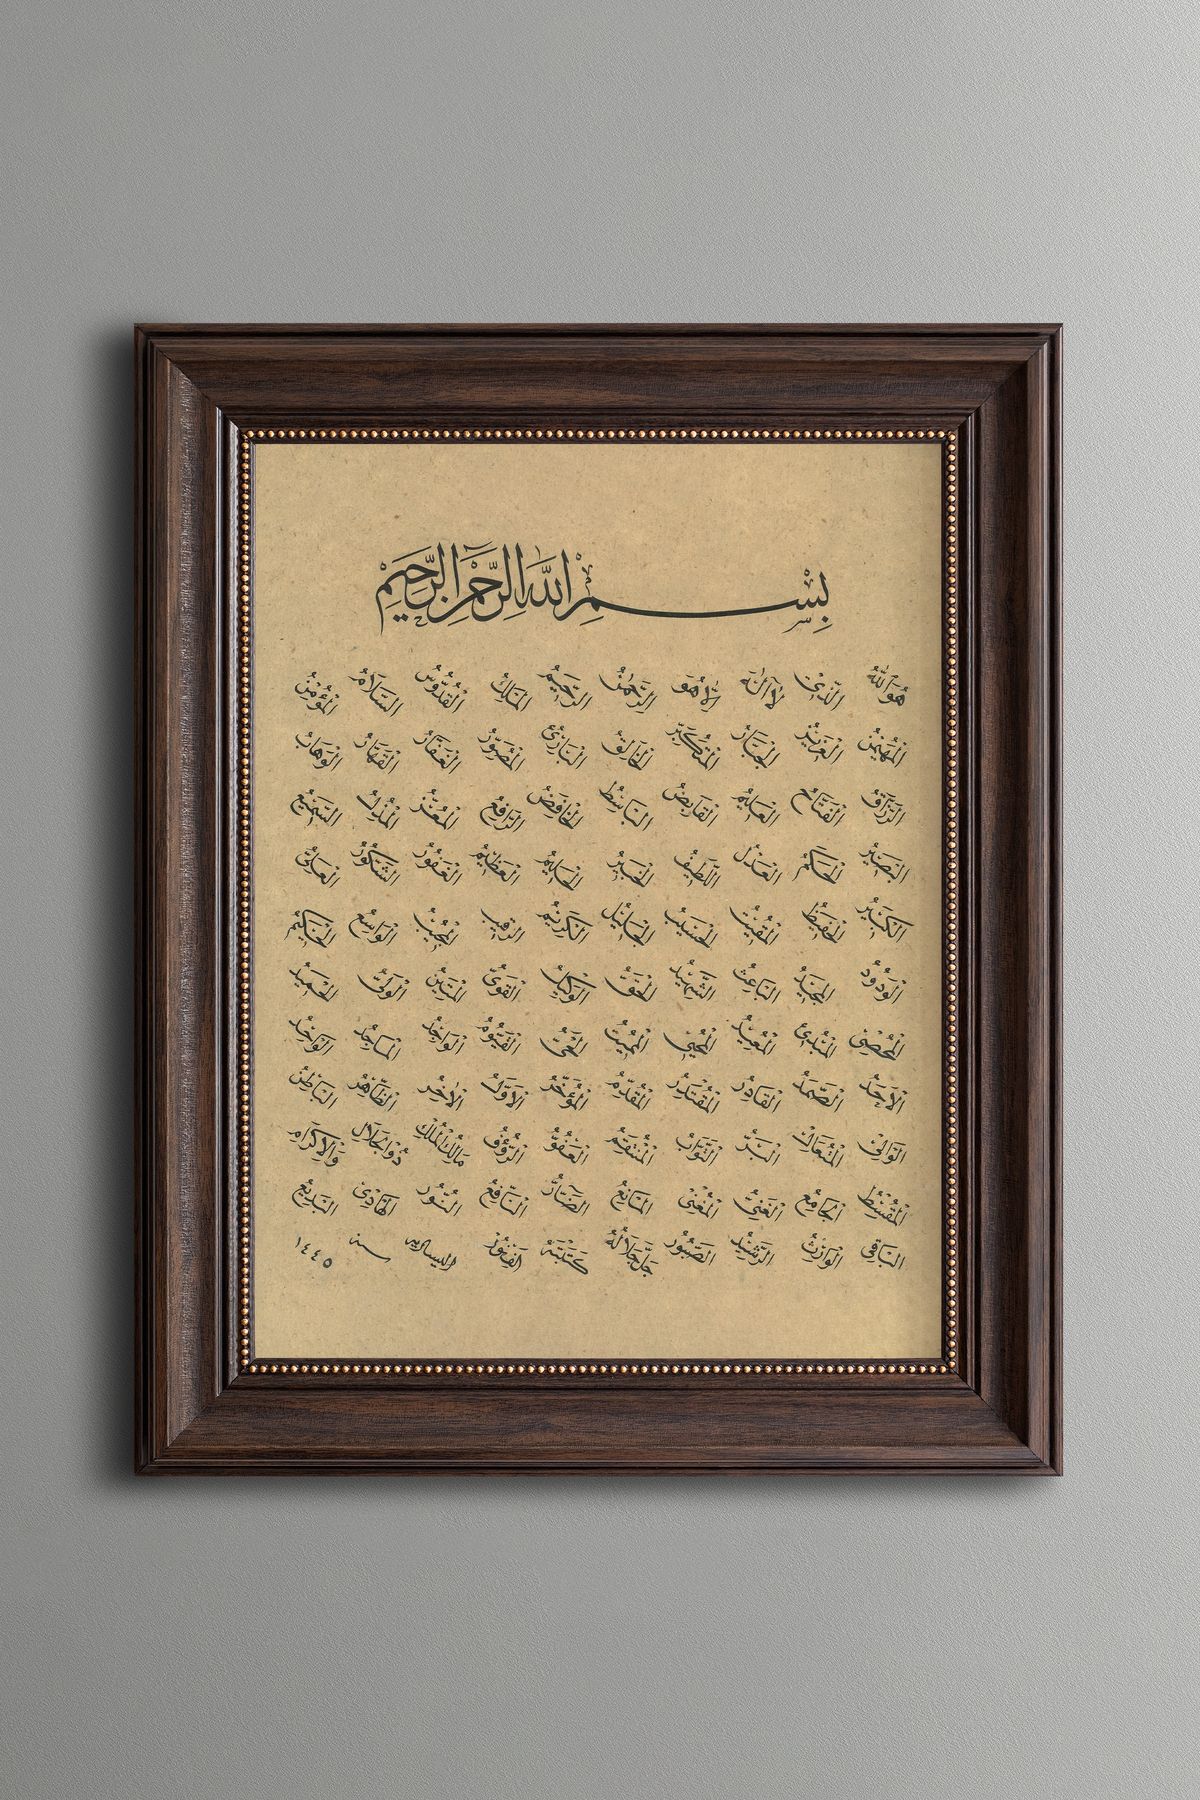 بِسْمِ اللهِ الرَّحْمٰنِ الرَّحِيمِ
هُوَ اللهُ الَّذِي لَا اِلٰهَ اِلَّا هُوَ الرَّحْمٰنُ الرَّحِيمُ الْمَلِكُ الْقُدُّوسُ السَّلَامُ الْمُؤْمِنُ
الْمُهَيْمِنُ الْعَزِيزُ الْجَبَّارُ الْمُتَكَبِّرُ الْخَالِقُ الْبَارِئُ الْمُصَوِّرُ الْغَفَّارُ الْقَهَّارُ الْوَهَّابُ
الرَّزَّاقُ الْفَتَّاحُ الْعَلِيمُ الْقَابِضُ الْبَاسِطُ الْخَافِضُ الرَّافِعُ الْمُعِزُّ الْمُذِلُّ السَّمِيعُ
الْبَصِيرُ الْحَكَمُ الْعَدْلُ اللَّطِيفُ الْخَبِيرُ الْحَلِيمُ الْعَظِيمُ الْغَفُورُ الشَّكُورُ الْعَلِيُّ
الْكَبِيرُ الْحَفِيظُ الْمُقِيتُ الْحَسِيبُ الْجَلِيلُ الْكَرِيمُ الرَّقِيبُ الْمُجِيبُ الْوَاسِعُ الْحَكِيمُ
الْوَدُودُ الْمَجِيدُ الْبَاعِثُ الشَّهِيدُ الْحَقُّ الْوَكِيلُ الْقَوِيُّ الْمَتِينُ الْوَلِيُّ الْحَمِيدُ
الْمُحْصِي الْمُبْدِئُ الْمُعِيدُ الْمُحْيِي الْمُمِيتُ الْحَيُّ الْقَيُّومُ الْوَاجِدُ الْمَاجِدُ الْوَاحِدُ
الْاَحَدُ الصَّمَدُ الْقَادِرُ الْمُقْتَدِرُ الْمُقَدِّمُ الْمُؤَخِّرُ الْاَوَّلُ الْاٰخِرُ الظَّاهِرُ الْبَاطِنُ
الْوَالِي الْمُتَعَالِ الْبَرُّ التَّوَّابُ الْمُنْتَقِمُ الْعَفُوُّ الرَّؤُفُ مَالِكُ الْمُلْكِ ذُو الْجَلَالِ وَالْاِكْرَامِ
الْمُقْسِطُ الْجَامِعُ الْغَنِيُّ الْمُغْنِي الْمَانِعُ الضَّارُّ النَّافِعُ النُّورُ الْهَادِي الْبَدِيعُ
الْبَاقِي الْوَارِثُ الرَّشِيدُ الصَّبُورُ جَلَّ جَلَالُهُ كَتَبَهُ سنه ١٤٤٥